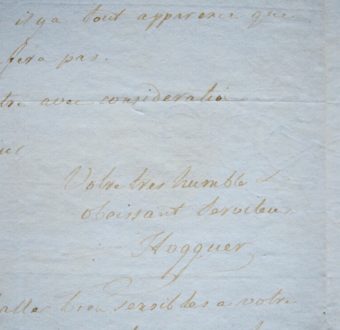 il y a tout apparence que
fera pas.
tre avec consideratio
Votre tres humble
obaissant Serviteur
Hogguer
aller bien sensibles a votre